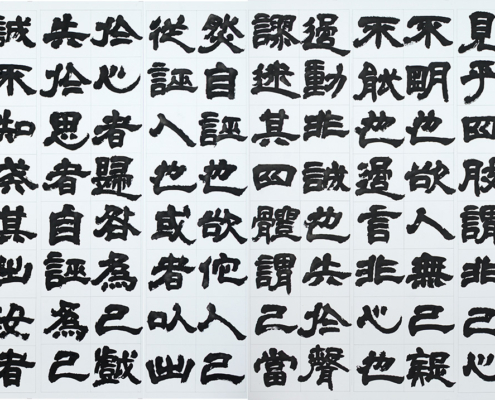 見乎四肢謂非己心
不明也欲人無己疑
不能也過言非心也
過動非誠也失於聲
謬迷其四體謂己當
然自誣也欲佗人己
從誣人也或者以出
於心者歸咎為己戲
失於思者自誣為己
誠不知戒其出汝者